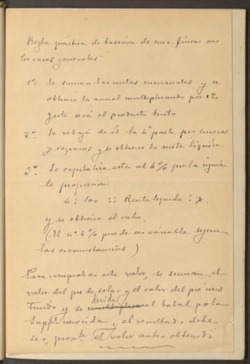 Regla practica de tasacion de una finca en
los casos generales:
1º Se suman las rentas mensuales y se
obtiene la anual multiplicando por 12
y esto será el producto bruto
2º Se rebaja de él la 4ª parte por huecos
y reparos y se obtiene la renta liquida
3º Se capitaliza esta al 6% por la siguiente
proporcion
6 : 100 :: Renta liquida : x,
y se obtiene el valor.
(El nº 6% puede ser variable segun
las circunstancias)
Para comprobar este valor, se suman, el
valor del pie de solar y el valor del pie cons
truido y se divide el total por la
superf. conocida y el resultado, debe
ser, proxte. El valor antes obtenido